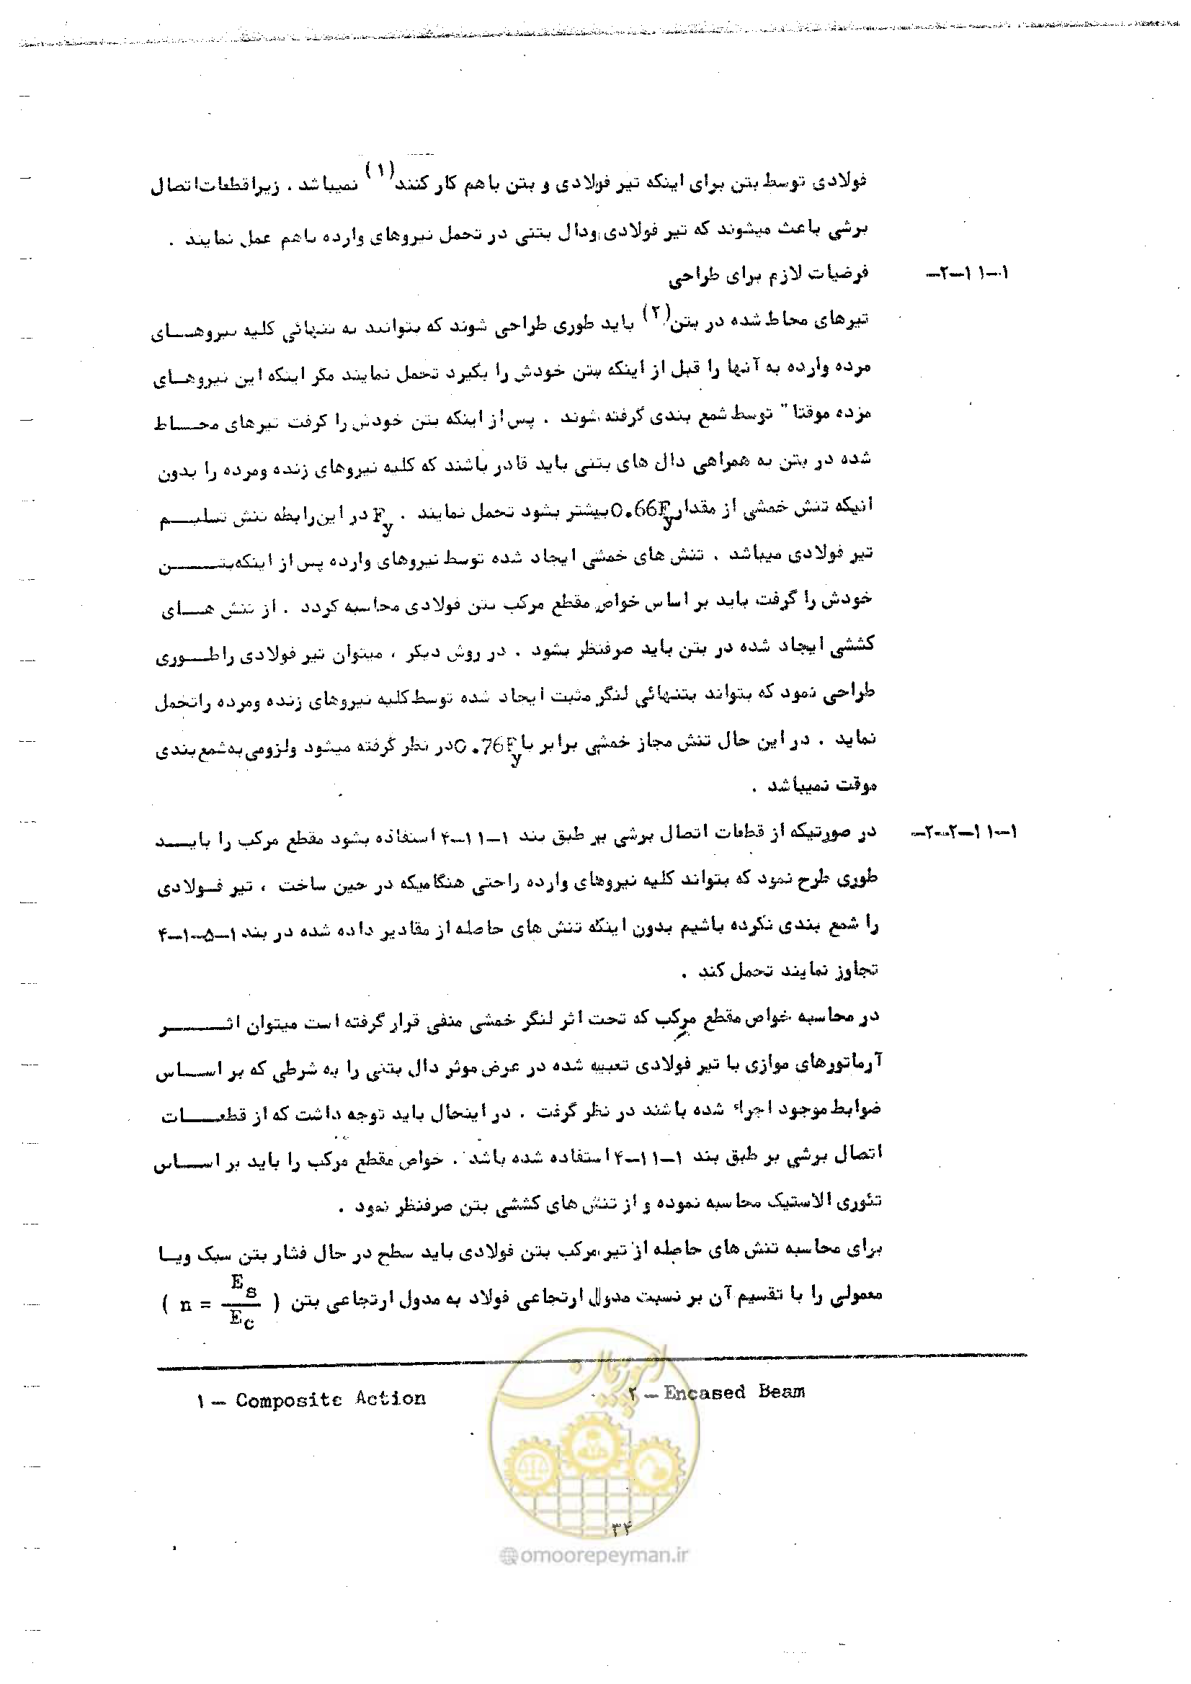 فولادی توسط بتن برای اینکه تیر فولادی و بتن باهم کار کنند(۱) نمیباشد . زیرا قطعات اتصال
برشی باعث میشوند که تیر فولادی ودال بتنی در تحمل نیروهای وارده باهم عمل نمایند .
۱-۱۱-۲- فرضیات لازم برای طراحی
تیرهای محاط شده در بتن(۲) باید طوری طراحی شوند که بتوانند به تنهائی کلیه نیروهـــای
مرده وارده به آنها را قبل از اینکه بتن خودش را بگیرد تحمل نمایند مگر اینکه این نیروهـای
مرده موقتا" توسط شمع بندی گرفته شوند . پس از اینکه بتن خودش را گرفت تیرهای محــاط
شده در بتن به همراهی دال های بتنی باید قادر باشند که کلیه نیروهای زنده ومرده را بدون
انیکه تنش خمشی از مقدار 0.66Fy بیشتر بشود تحمل نمایند . Fy در این رابطه تنش تسلیـــم
تیر فولادی میباشد . تنش های خمشی ایجاد شده توسط نیروهای وارده پس از اینکه بتـــــن
خودش را گرفت باید بر اساس خواص مقطع مرکب بتن فولادی محاسبه گردد . از تنش هــای
کششی ایجاد شده در بتن باید صرفنظر بشود . در روش دیگر ، میتوان تیر فولادی را طـــوری
طراحی نمود که بتواند بتنهائی لنگر مثبت ایجاد شده توسط کلیه نیروهای زنده ومرده راتحمل
نماید . در این حال تنش مجاز خمشی برابر با 0.76Fy در نظر گرفته میشود ولزومی به شمع بندی
موقت نمیباشد .
۱-۱۱-۲-۲- در صورتیکه از قطعات اتصال برشی بر طبق بند ۱-۱۱-۴ استفاده بشود مقطع مرکب را بایـــد
طوری طرح نمود که بتواند کلیه نیروهای وارده راحتی هنگامیکه در حین ساخت ، تیر فــولادی
را شمع بندی نکرده باشیم بدون اینکه تنش های حاصله از مقادیر داده شده در بند ۱-۵-۱-۴
تجاوز نمایند تحمل کند .
در محاسبه خواص مقطع مرکب که تحت اثر لنگر خمشی منفی قرار گرفته است میتوان اثـــــر
آرماتورهای موازی با تیر فولادی تعبیه شده در عرض موثر دال بتنی را به شرطی که بر اســاس
ضوابط موجود اجراء شده باشند در نظر گرفت . در اینحال باید توجه داشت که از قطعــات
اتصال برشی بر طبق بند ۱-۱۱-۴ استفاده شده باشد . خواص مقطع مرکب را باید بر اســاس
تئوری الاستیک محاسبه نموده و از تنش های کششی بتن صرفنظر نمود .
برای محاسبه تنش های حاصله از تیر مرکب بتن فولادی باید سطح در حال فشار بتن سبک ویـا
معمولی را با تقسیم آن بر نسبت مدول ارتجاعی فولاد به مدول ارتجاعی بتن ( n = Es/Ec )
۱ – Composite Action
۲ – Encased Beam
امور پیمان
۳۴
@omoorepeyman.ir